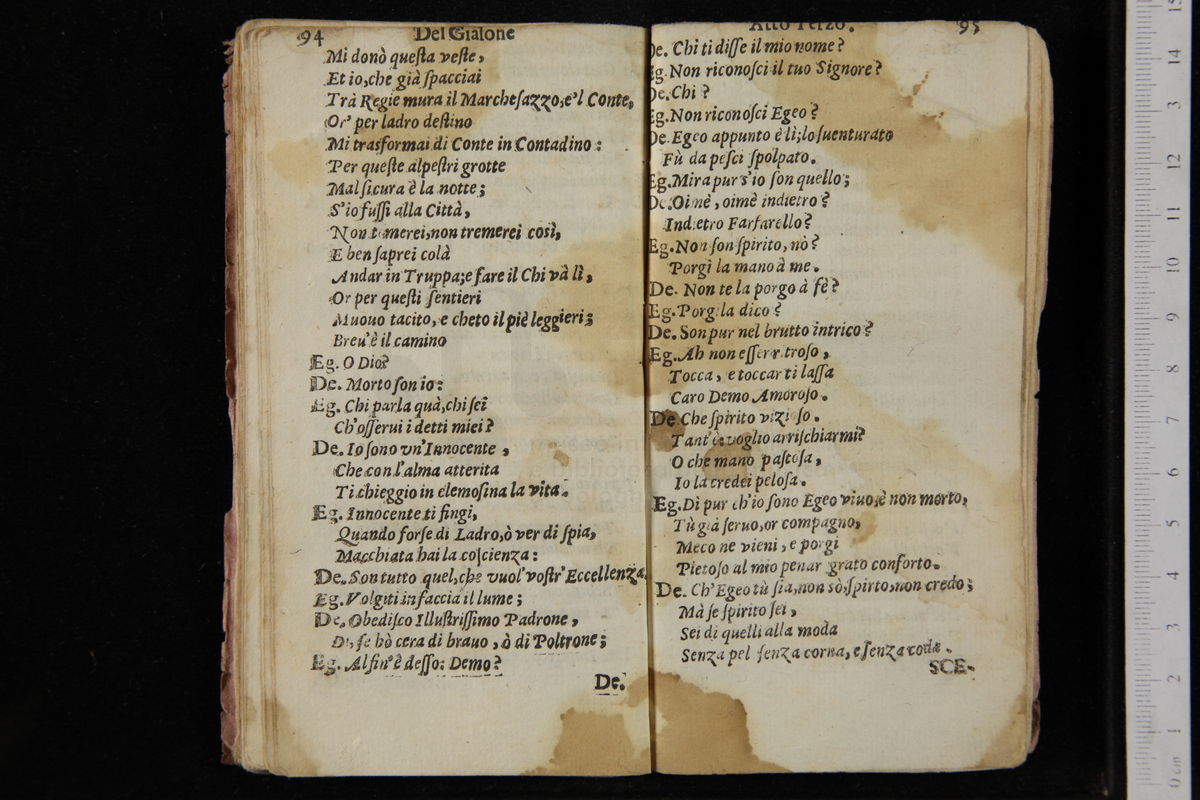 94 Del Giasone
Mi donò queſta veſte,
Et io, che già ſpacciai
Trà Regie mura il Marcheſazzo, e'l Conte,
Or' per ladro deſtino
Mi trasformai di Conte in Contadino:
Per queſte alpeſtri grotte
Mal ſicura è la notte;
S'io fuſſi alla Città,
Non temerei, non tremerei così,
E ben ſaprei colà
Andar in Truppa; e fare il Chi và lì,
Or per queſti ſentieri
Muouo tacito, e cheto il piè leggieri;
Breu'è il camino
Eg. O Dio?
De. Morto ſon io:
Eg. Chi parla quà, chi ſei
Ch'oſſerui i detti miei?
De. Io ſono vn'Innocente,
Che con l'alma atterita
Ti chieggio in elemoſina la vita.
Eg. Innocente ti fingi,
Quando forſe di Ladro, ò ver di ſpia,
Macchiata hai la coſcienza:
De. Son tutto quel, che vuol' voſtr'Eccellenza.
Eg. Volgiti in faccia il lume;
De. Obediſco Illuſtriſſimo Padrone,
Di, ſe hò cera di brauo, ò di Poltrone;
Eg. Al fin'è deſſo: Demo?
De.
Atto Terzo. 95
De. Chi ti diſſe il mio nome?
Eg. Non riconoſci il tuo Signore?
De. Chi?
Eg. Non riconoſci Egeo?
De. Egeo appunto è lì; lo ſuenturato
Fù da peſci ſpolpato.
Eg. Mira pur s'io ſon quello;
De. Oimè, oimè indietro?
Indietro Farfarello?
Eg. Non ſon ſpirito, nò?
Porgi la mano à me.
De. Non te la porgo à fè?
Eg. Porgila dico?
De. Son pur nel brutto intrico?
Eg. Ah non eſſer ritroſo,
Tocca, e toccar ti laſſa
Caro Demo Amoroſo.
De. Che ſpirito vizioſo.
Tant'è: voglio arriſchiarmi?
O che mano paſtoſa,
Io la credei peloſa.
Eg. Dì pur ch'io ſono Egeo viuo, è non morto,
Tù già ſeruo, or compagno,
Meco ne vieni, e porgi
Pietoſo al mio penar grato conforto.
De. Ch'Egeo tù ſia, non sò, ſpirto, non credo;
Mà ſe ſpirito ſei,
Sei di quelli alla moda
Senza pel ſenza corna, e ſenza coda.
SCE-